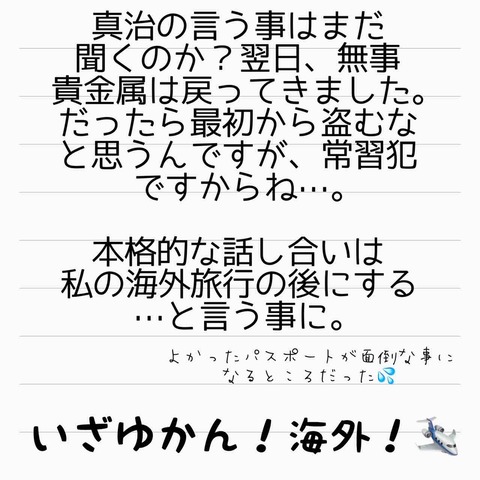 真治の言う事はまだ
聞くのか？翌日、無事
貴金属は戻ってきました。
だったら最初から盗むな
と思うんですが、常習犯
ですからね…。
本格的な話し合いは
私の海外旅行の後にする
…と言う事に。
よかったパスポートが面倒な事に
なるところだった💦
いざゆかん！海外！🛩️